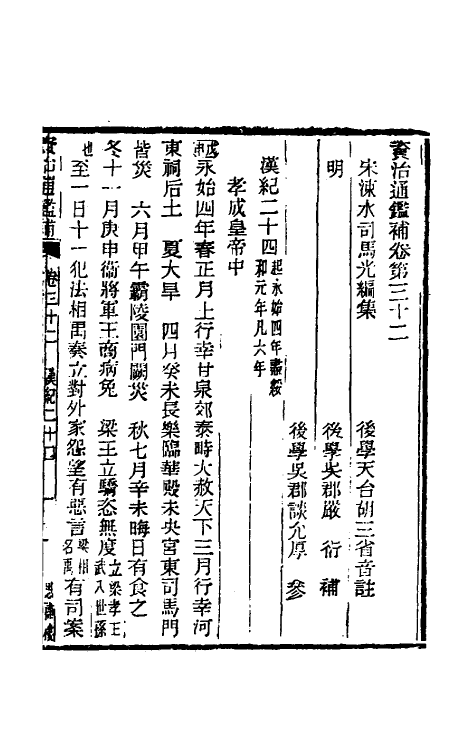 資治通鑑補卷第三十二
宋涑水司馬光編集　後學天台胡三省音註
明　後學吳郡嚴衍補
後學吳郡談允厚參
漢紀二十四起永始四年盡綏和元年凡六年
孝成皇帝中
永始四年春正月上行幸甘泉郊泰畤大赦天下三月行幸河
東祠后土　夏大旱　四月癸未長樂臨華殿未央宮東司馬門
皆災　六月甲午霸陵園門闕災　秋七月辛未晦日有食之
冬十一月庚申衞將軍王商病免　梁王立驕恣無度立梁孝王武八世孫
也至一日十一犯法相禹奏立對外家怨望有惡言梁相名禹有司案
資治通鑑補　卷三十二　漢紀二十四